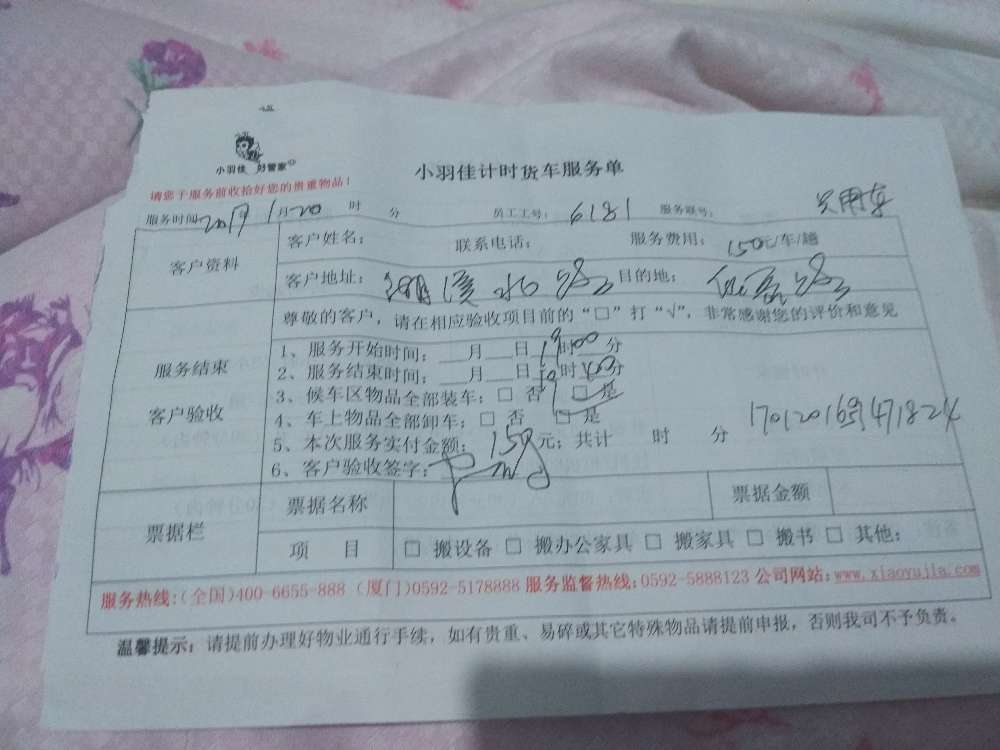 小羽佳 好管家
小羽佳计时货车服务单
请您于服务前收拾好您的贵重物品！
服务时间 2017年 1月20 时 分 员工工号： 6181 服务联号： 只用车
客户资料
客户姓名： 联系电话： 服务费用： 150元/车/趟
客户地址： 湖滨 路 目的地： 路
尊敬的客户，请在相应验收项目前的“□”打“√”，非常感谢您的评价和意见
服务结束
客户验收
1、服务开始时间：___月___日 19时00分
2、服务结束时间：___月___日 19时 分
3、候车区物品全部装车：□ 否 □ 是
4、车上物品全部卸车：□ 否 □ 是
5、本次服务实付金额： 150元；共计 时 分
6、客户验收签字：
票据栏
票据名称 票据金额
项 目 □ 搬设备 □ 搬办公家具 □ 搬家具 □ 搬书 □ 其他：
服务热线：(全国)400-6655-888 (厦门)0592-5178888 服务监督热线：0592-5888123 公司网站：www.xiaoyujia.com
温馨提示：请提前办理好物业通行手续，如有贵重、易碎或其它特殊物品请提前申报，否则我司不予负责。